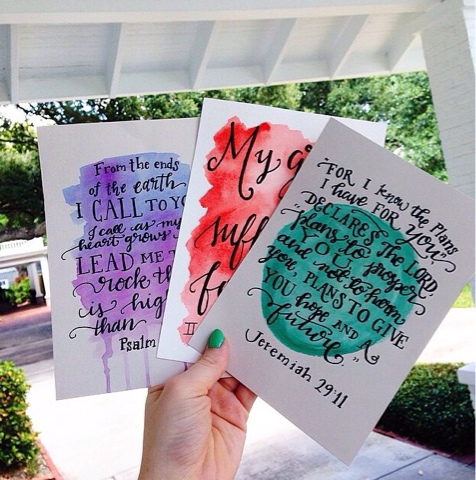 From the ends
of the earth
I CALL TO YO
I call as my
heart grows
LEAD ME T
rock th
is hig
than
Psalm
My g
suff
f
II
"FOR I know the Plans
I have FOR you"
DECLARES THE LORD
"plans to prosper
YOU
and not to harm
you, PLANS TO GIVE
YOU hope AND A
future."
Jeremiah 29:11